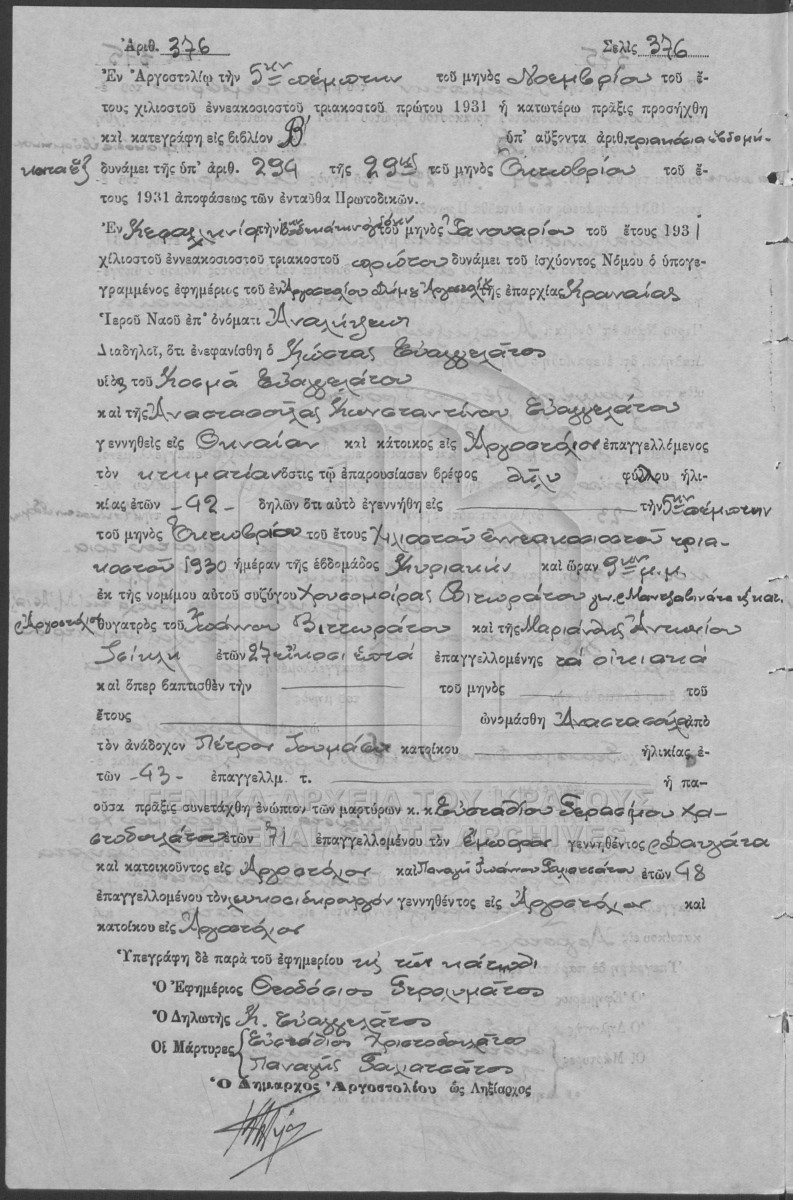 Ἀριθ. 376 Σελὶς 376
Ἐν Ἀργοστολίῳ τὴν 5ην πέμπτην τοῦ μηνὸς Νοεμβρίου τοῦ ἔ-
τους χιλιοστοῦ ἐννεακοσιοστοῦ τριακοστοῦ πρώτου 1931 ἡ κατωτέρω πρᾶξις προσήχθη
καὶ κατεγράφη εἰς βιβλίον Β' ὑπ' αὔξοντα ἀριθ. τριακόσια ἑβδομή-
κοντα ἓξ δυνάμει τῆς ὑπ' ἀριθ. 294 τῆς 29ης τοῦ μηνὸς Ὀκτωβρίου τοῦ ἔ-
τους 1931 ἀποφάσεως τῶν ἐνταῦθα Πρωτοδικῶν.
Ἐν Κεφαλληνίᾳ τὴν τοῦ μηνὸς Ἰανουαρίου τοῦ ἔτους 1931
χιλιοστοῦ ἐννεακοσιοστοῦ τριακοστοῦ πρώτου δυνάμει τοῦ ἰσχύοντος Νόμου ὁ ὑπογε-
γραμμένος ἐφημέριος τοῦ ἐν Ἀργοστολίου Δήμου Ἀργοστολίου τῆς ἐπαρχίας Κραναίας
Ἱεροῦ Ναοῦ ἐπ' ὀνόματι Ἀναλήψεως
Διαδηλοῖ, ὅτι ἐνεφανίσθη ὁ Κώστας Εὐαγγελάτος
υἱὸς τοῦ Κοσμᾶ Εὐαγγελάτου
καὶ τῆς Ἀναστασούλας Κωνσταντίνου Εὐαγγελάτου
γεννηθεὶς εἰς Θηναίαν καὶ κάτοικος εἰς Ἀργοστόλιον ἐπαγγελλόμενος
τὸν κτηματίαν ὅστις τῷ ἐπαρουσίασεν βρέφος θῆλυ φύλου ἡλι-
κίας ἐτῶν -42- δηλῶν ὅτι αὐτὸ ἐγεννήθη εἰς τὴν 5ην πέμπτην
τοῦ μηνὸς Ὀκτωβρίου τοῦ ἔτους Χιλιοστοῦ ἐννεακοσιοστοῦ τρια-
κοστοῦ 1930 ἡμέραν τῆς ἑβδομάδος Κυριακὴν καὶ ὥραν 9ην μ.μ.
ἐκ τῆς νομίμου αὐτοῦ συζύγου Χρυσομοίρας Βιττωράτου
Ἀργοστόλιον θυγατρὸς τοῦ Ἰωάννου Βιττωράτου καὶ τῆς Μαριάνθης Ἀντωνίου
ἐτῶν 27 εἴκοσι ἑπτὰ ἐπαγγελλομένης τὰ οἰκιακὰ
καὶ ὅπερ βαπτισθὲν τὴν τοῦ μηνὸς τοῦ
ἔτους ὠνομάσθη Ἀναστασούλα ἀπὸ
τὸν ἀνάδοχον Πέτρον κατοίκου ἡλικίας ἐ-
τῶν -43- ἐπαγγελλμ. τ. ἡ πα-
ροῦσα πρᾶξις συνετάχθη ἐνώπιον τῶν μαρτύρων κ. κ. Εὐσταθίου Γερασίμου Χρι-
στοδουλάτου ἐτῶν 71 ἐπαγγελλομένου τὸν ἔμπορον γεννηθέντος Δαυγάτα
καὶ κατοικοῦντος εἰς Ἀργοστόλιον καὶ Παναγῆ Ἰωάννου Γαλιατσάτου ἐτῶν 48
ἐπαγγελλομένου τὸν λευκοσιδηρουργὸν γεννηθέντος εἰς Ἀργοστόλιον καὶ
κατοίκου εἰς Ἀργοστόλιον
Ὑπεγράφη δὲ παρὰ τοῦ ἐφημερίου κ' τῶν κάτωθι
Ὁ Ἐφημέριος Θεοδόσιος
Ὁ Δηλωτὴς Κ. Εὐαγγελάτος
Οἱ Μάρτυρες Εὐστάθιος Χριστοδουλάτος
Παναγῆς Γαλιατσάτος
Ὁ Δήμαρχος Ἀργοστολίου ὡς Ληξίαρχος
ΓΕΝΙΚΑ ΑΡΧΕΙΑ ΤΟΥ ΚΡΑΤΟΥΣ
GREEK STATE ARCHIVES